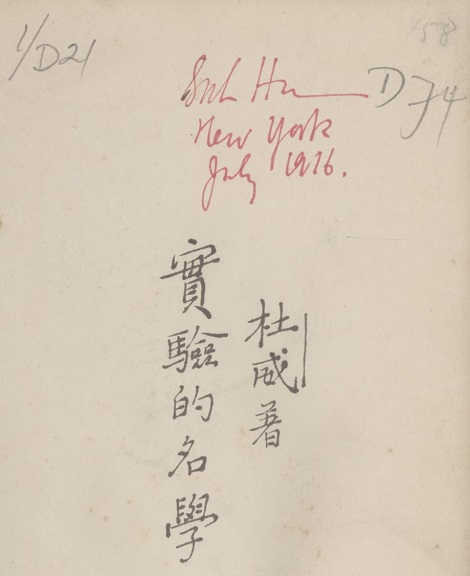 1/D21
Suh Hu
New York
July 1916.
杜威著
實驗的名學